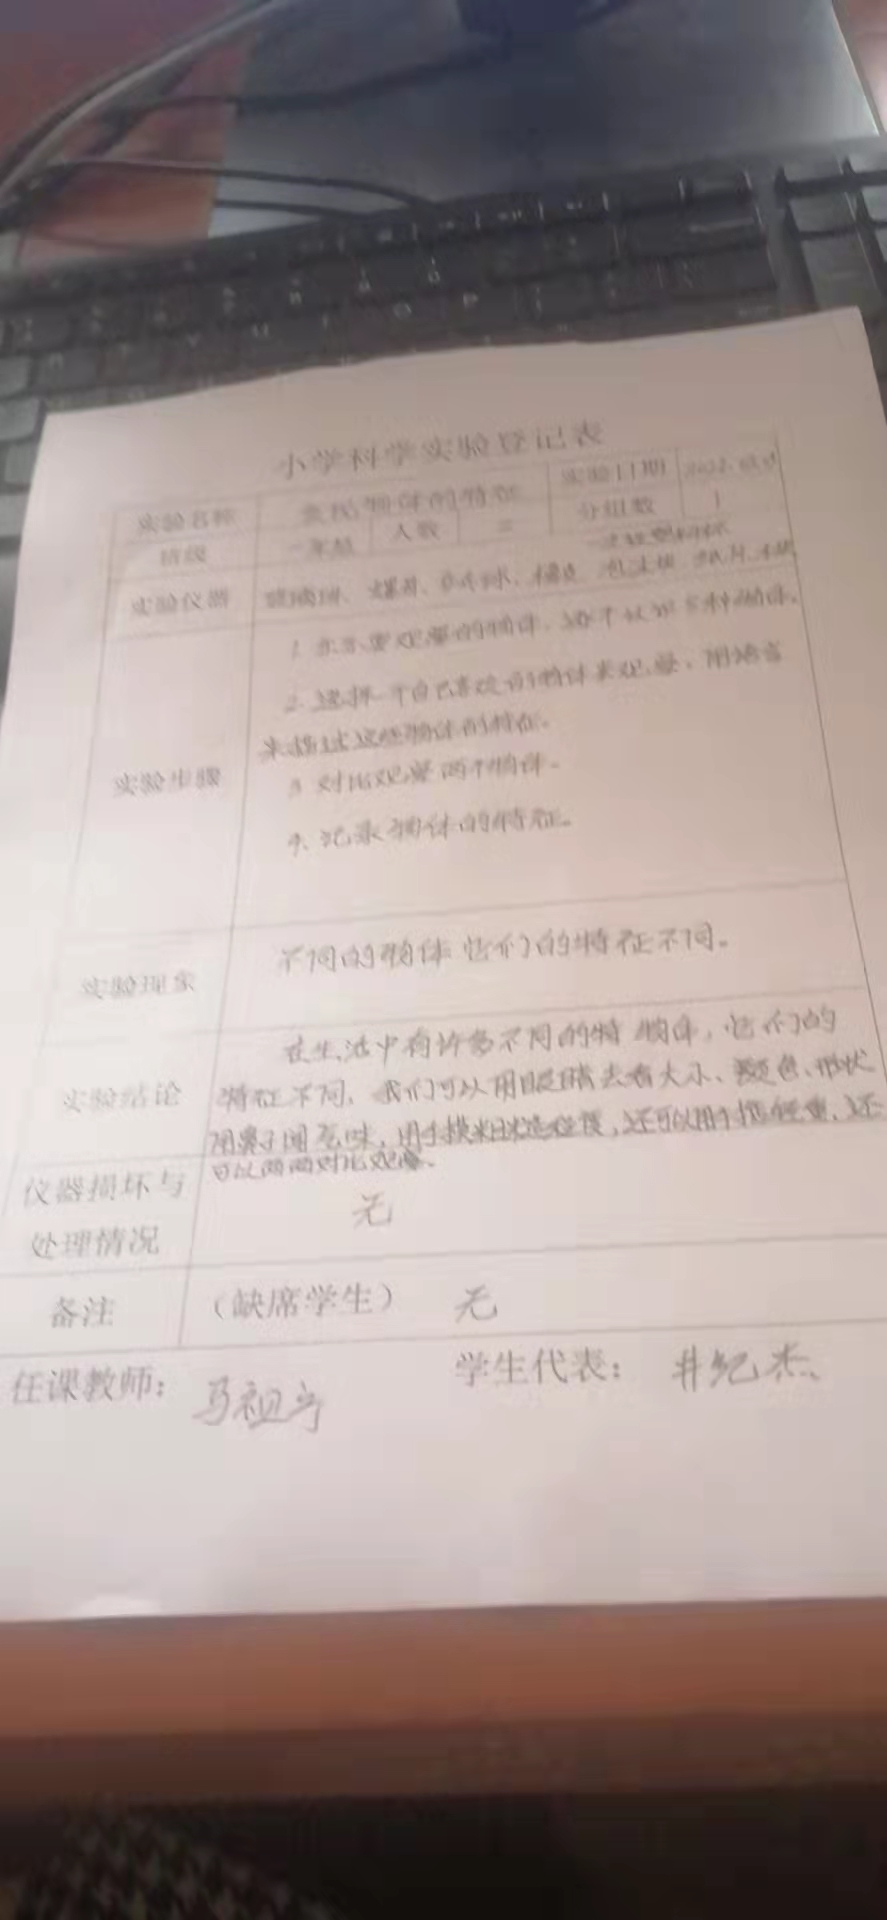 小学科学实验登记表
实验名称 物体的特征 实验日期
班级 一年级 人数 二 分组数 1
实验仪器 玻璃球、螺母、乒乓球、橡皮
1. 观察的物体，
2. 选择一个自己喜欢的物体来观察，用语言
来描述这些物体的特征。
实验步骤 3 对比观察两个物体。
4、记录物体的特征。
实验现象 不同的物体它们的特征不同。
在生活中有许多不同的特 物体，它们的
实验结论 特征不同，我们可以用眼睛去看大小、颜色、形状
用鼻子闻气味，用手摸粗糙程度，还可以用手掂轻重，还
可以两两对比观察。
仪器损坏与
处理情况 无
备注 （缺席学生） 无
任课教师： 马祖宁 学生代表： 井纪杰